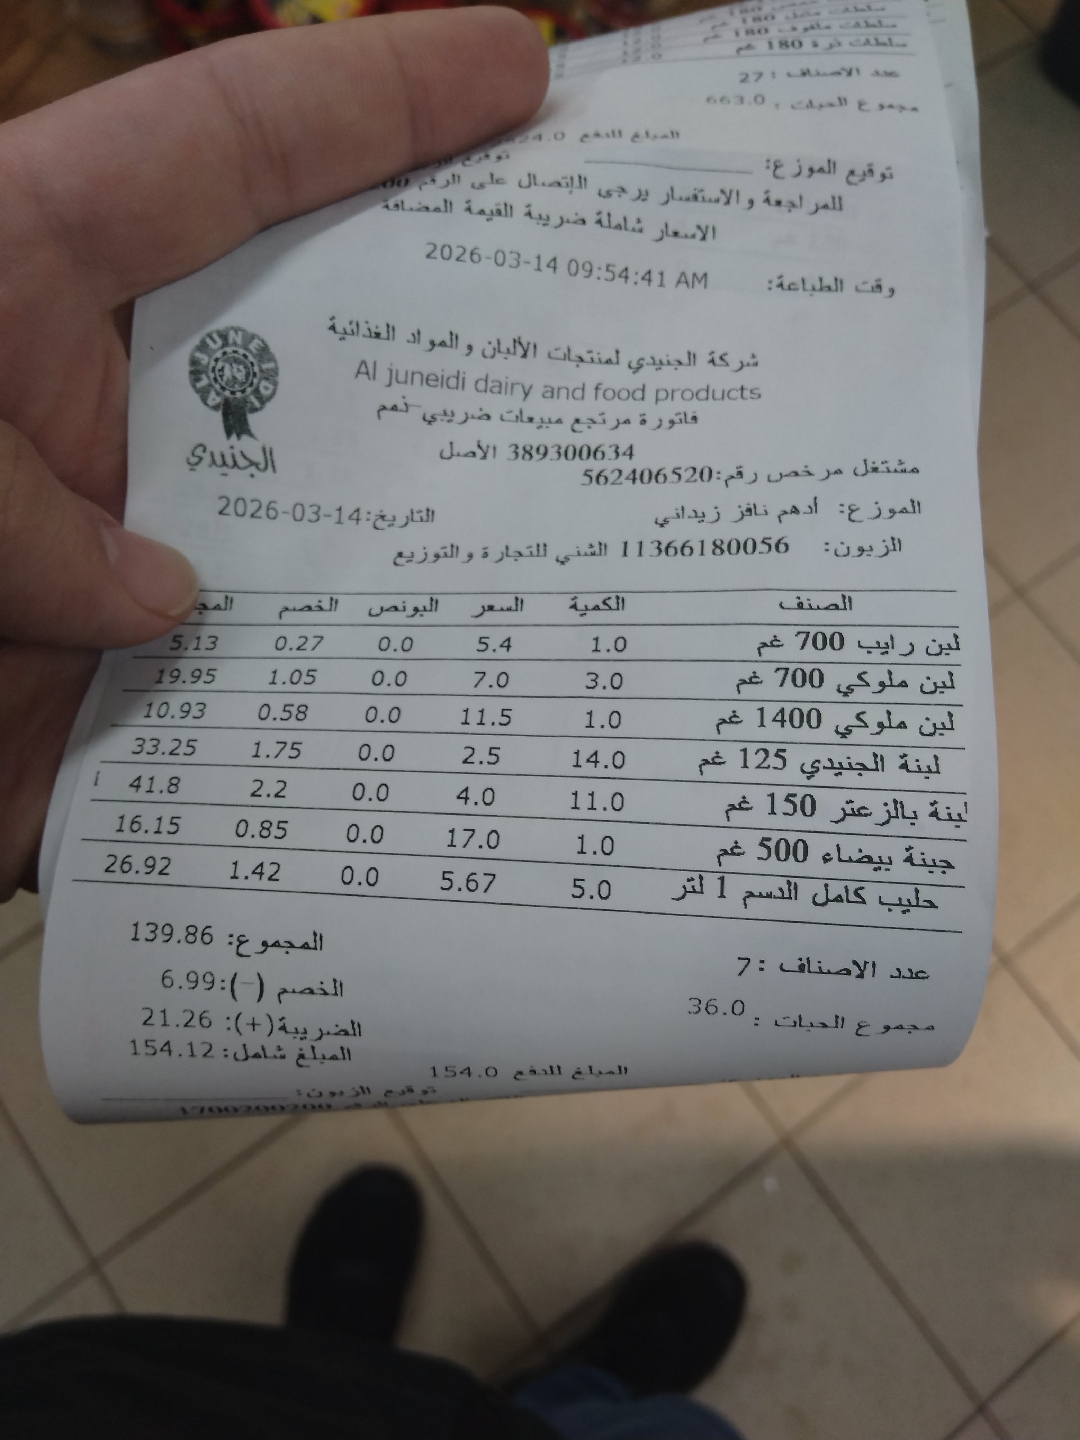 سلطات ملفوف 180 غم
سلطات ذرة 180 غم 12.0
عدد الاصناف : 27
مجموع الحبات : 663.0
المبلغ للدفع
توقيع الموزع:
للمراجعة والاستفسار يرجى الإتصال على الرقم
الاسعار شاملة ضريبة القيمة المضافة
وقت الطباعة: 2026-03-14 09:54:41 AM
شركة الجنيدي لمنتجات الألبان والمواد الغذائية
Al juneidi dairy and food products
AL JUNEIDI
الجنيدي
فاتورة مرتجع مبيعات ضريبي
389300634 الأصل
مشتغل مرخص رقم:562406520
الموزع: أدهم نافز زيداني التاريخ:2026-03-14
الزبون: 11366180056 الشني للتجارة والتوزيع
الصنف الكمية السعر البونص الخصم
لبن رايب 700 غم 1.0 5.4 0.0 0.27 5.13
لبن ملوكي 700 غم 3.0 7.0 0.0 1.05 19.95
لبن ملوكي 1400 غم 1.0 11.5 0.0 0.58 10.93
لبنة الجنيدي 125 غم 14.0 2.5 0.0 1.75 33.25
لبنة بالزعتر 150 غم 11.0 4.0 0.0 2.2 41.8
جبنة بيضاء 500 غم 1.0 17.0 0.0 0.85 16.15
حليب كامل الدسم 1 لتر 5.0 5.67 0.0 1.42 26.92
عدد الاصناف :7 المجموع: 139.86
مجموع الحبات : 36.0 الخصم (-):6.99
الضريبة(+): 21.26
المبلغ شامل: 154.12
المبلغ للدفع 154.0
توقيع الزبون:
1700200200